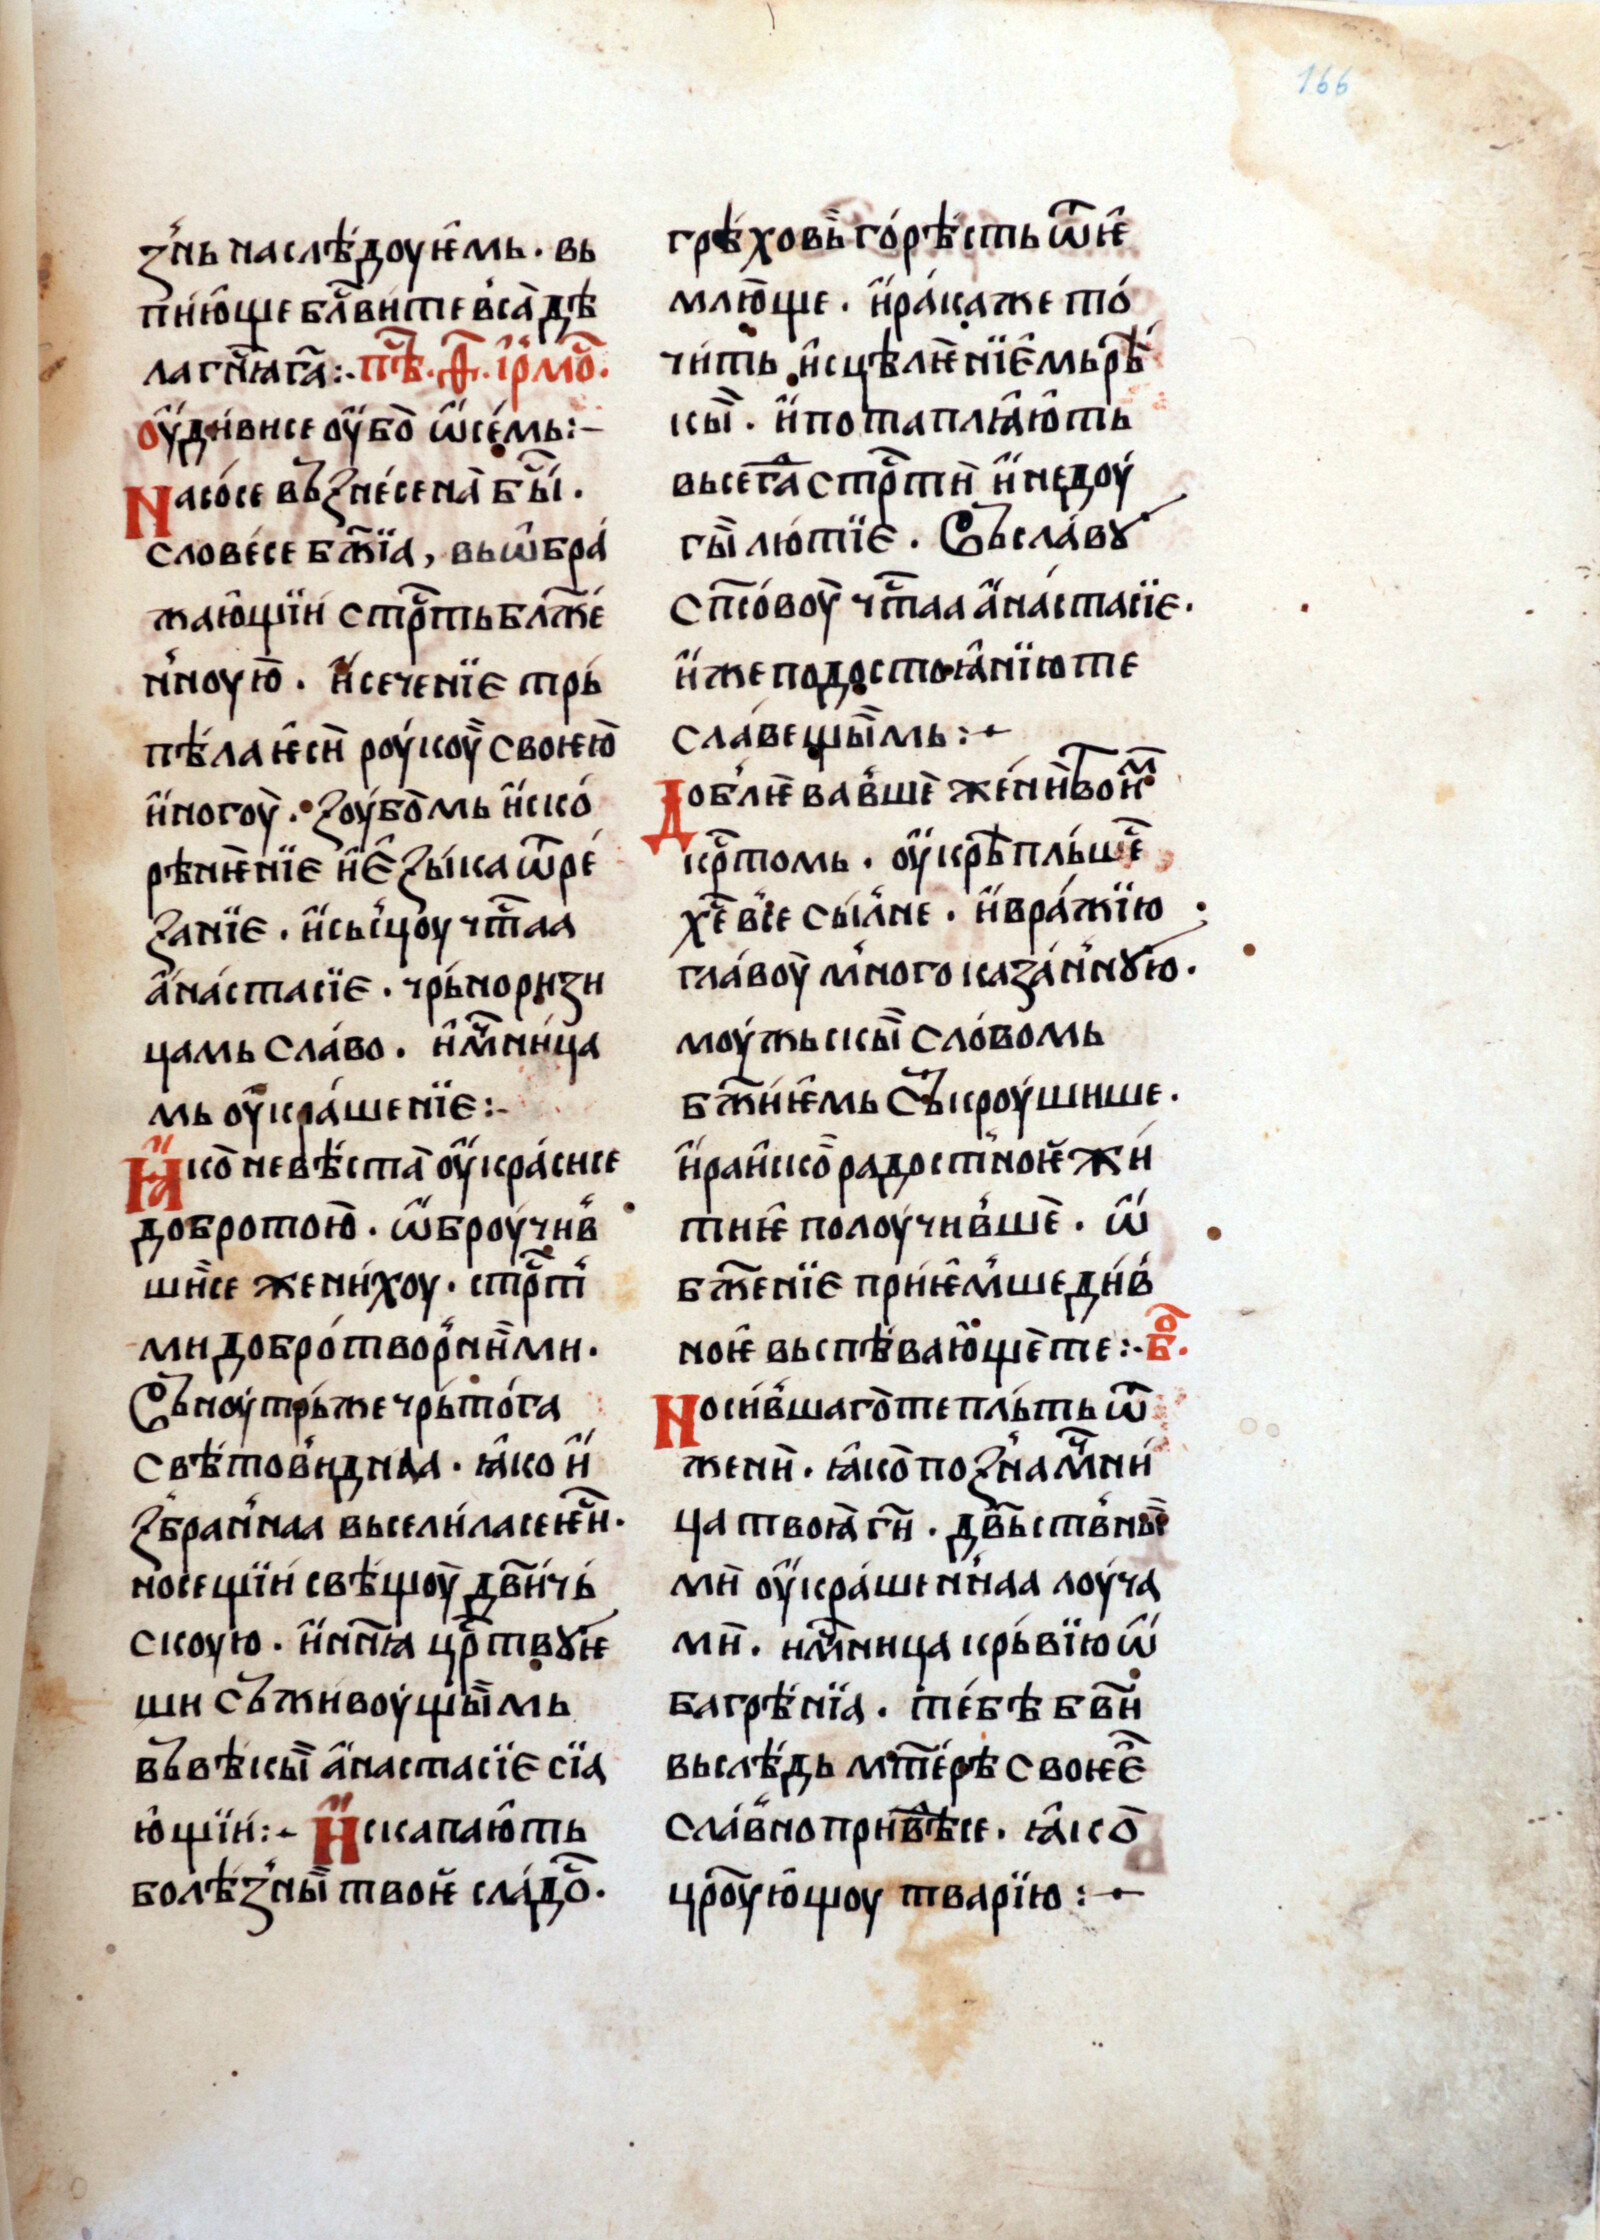 166
зⷩ҇ь наслѣ́доуѥ҆мь · вь
пию҆ще бл҃вите в҆са̀ дѣ
ла гн҃ꙗ га҃ :· пѣⷭ҇ · ѳ҃ · і҆рмоⷭ҇ ·
Оу҆ди́висе оу҆бо̀ ѡ҆ се́мь :–
На со́се въⁿзне́сена̀ бы́ⷭ҇ ·
слове́се бж҃їа , вьѡ҆бра́
жаю҆щїи стрⷭ҇ть бл҃же́
н꙽ноую̀ · и҆ сече́нїе трь́
пѣ́ла ѥ҆сѝ роу́коу̀ своѥю̀
и҆ ногоу̀ · зоубо̀мь и҆ско́
рѣнѥ́нїе и҆ е҆зы́ка ѿре́
за́нїе · и҆ сь́сцоу чⷭ҇таа
а҆на́стасїе · чрь́норизи
цамь сла́во · и҆ мч҃ни́ца
мь оу҆кра́шенїе :·
Ꙗ҆ко̀ невѣ́ста̀ оу҆кра́сисе
добротою̀ · ѡ҆броу́чив꙽
ши̏се жени́хоу · стрⷭ҇ть
ми добро́твор꙽ни́ми ·
Съноутрь́же чрьто́га
свѣ́тов꙽идн꙽аа · ꙗ҆ко и҆
з꙽бран꙽наа вьсели́ласе ѥ҆сⷭ҇и ·
носещїи свѣ́щоу̀ дв҃и́чь
скоую · и҆ нн҃ꙗ црⷭ҇твꙋѥ
ши съ живоу́щы̏мь
въ вѣ́кы̏ а҆настасїе сїа
ю҆щїи :· И҆скапаю҆ть
болѣ́з꙽ны̏ твоѥ сла́доⷭ҇ ·
грѣ́ховь̏ го́рѣсть ѿѥ
млю̀ще · и҆ ра́ка же то́
чи́ть и҆сцѣлѥ́нїе҆мь рѣ́
кы̏ · и҆ потаплꙗ́ю҆ть
всега̀ стрⷭ҇ти̏ и҆ недоу́
гы̏ лю́тїе · Съ сла́вꙋ
сп҃со́воу̀ чⷭ҇таа а҆на́стасїе ·
и҆же подостоꙗ҆нїю те
сла́вещы̏мь :·
Доблѥва́в꙽шѐ же́ни̏ бо
крⷭ҇томь · оу҆крѣпль́шеⷭ҇
хе҃ в꙽се сы́л꙽не · и҆ вра́жїю
гла́воу̀ м꙽ного каза́н꙽нꙋю ·
моу́жьскы̏ сло́вомь
бж҃иѥ҆мь съкроу́шише ·
и҆ раи҆ско̀ радост꙽ноѥ жи́
тиѥ полоу́чив꙽шѐ · ѿ
бж҃енїе приѥ҆м꙽ше ди́в꙽
ноѥ вьспѣва́ю҆ще̏ те :· бⷪ҇ ·
Носи́в꙽шаго̀ те пль́ть ѿ
жени̏ · ꙗ҆ко̀ поз꙽на мⷱ҇ни́
ца твоꙗ̀ гⷭ҇и · дв҃ьств꙽ны̏
ми̏ оу҆кра́шен꙽наа лоу́ча
ми̏ · и мч҃ница крь́вїю ѡ҆
багрѣ́нїа · те́бѣ бв҃и
вьслѣ́дь мт҃е́рѣ своѥе҆
сла́в꙽но приве҃се · ꙗ҆ко̀
цр҃оую҆щоу тварїю :·